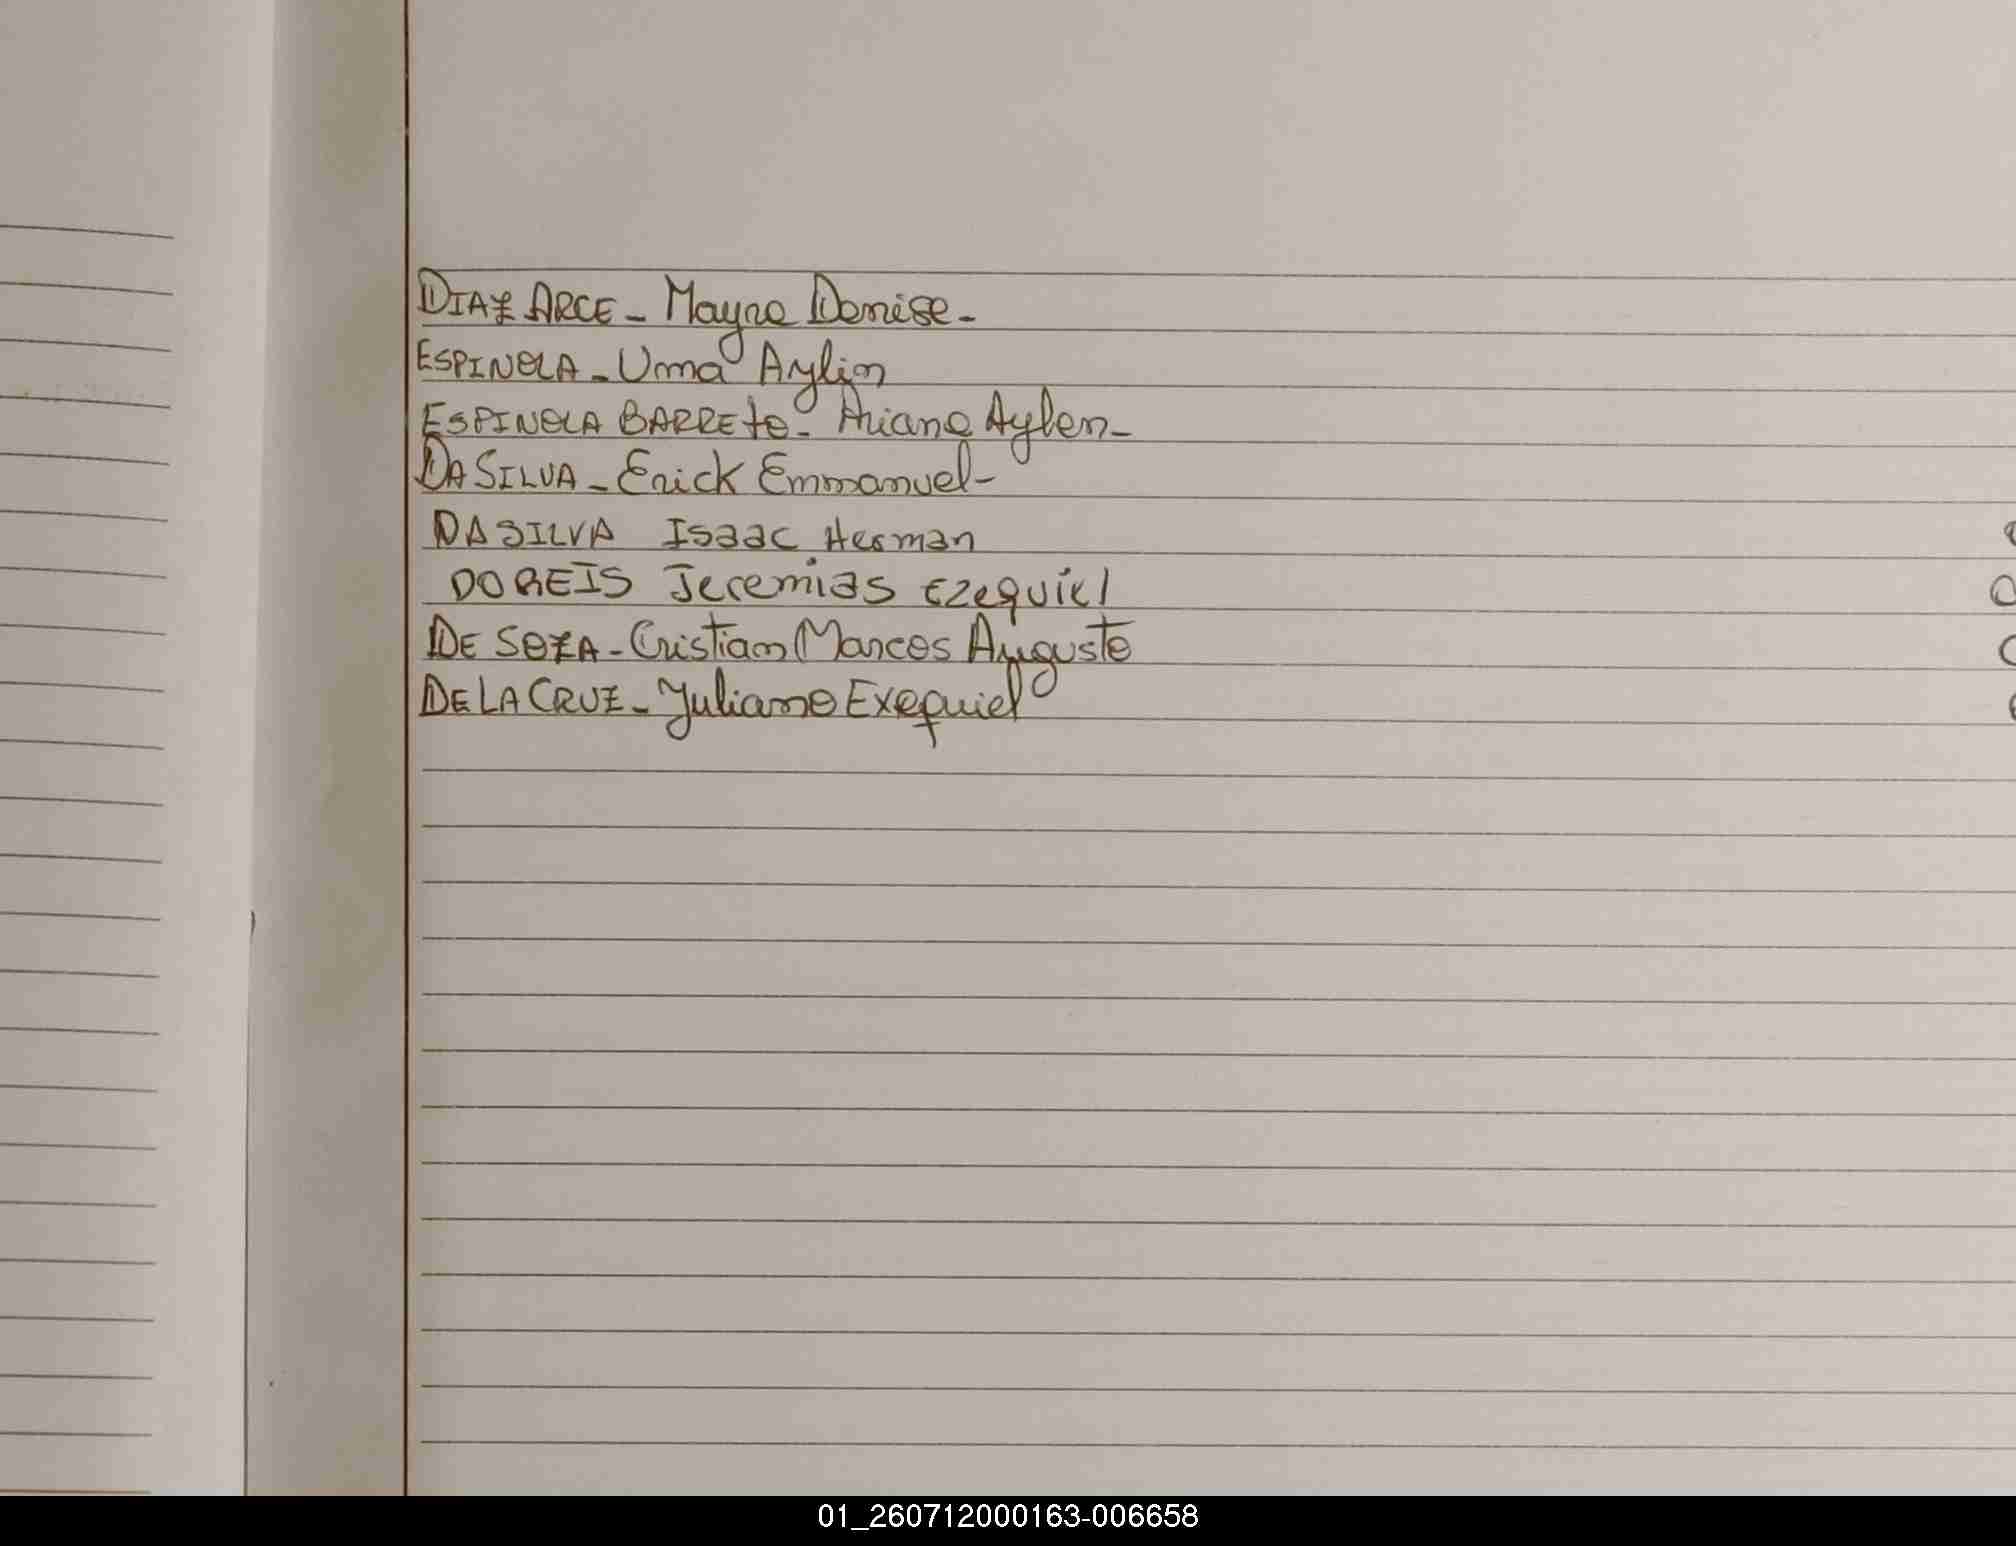 DIAZ ARCE - Mayra Denise -
ESPINOLA - Uma Aylin
ESPINOLA BARRETO - Ariana Aylen -
DA SILVA - Erick Emmanuel -
DA SILVA Isaac Herman
DOREIS Jeremias Ezequiel
DE SOZA - Cristian Marcos Augusto
DE LA CRUZ - Juliano Exequiel
01_260712000163-006658